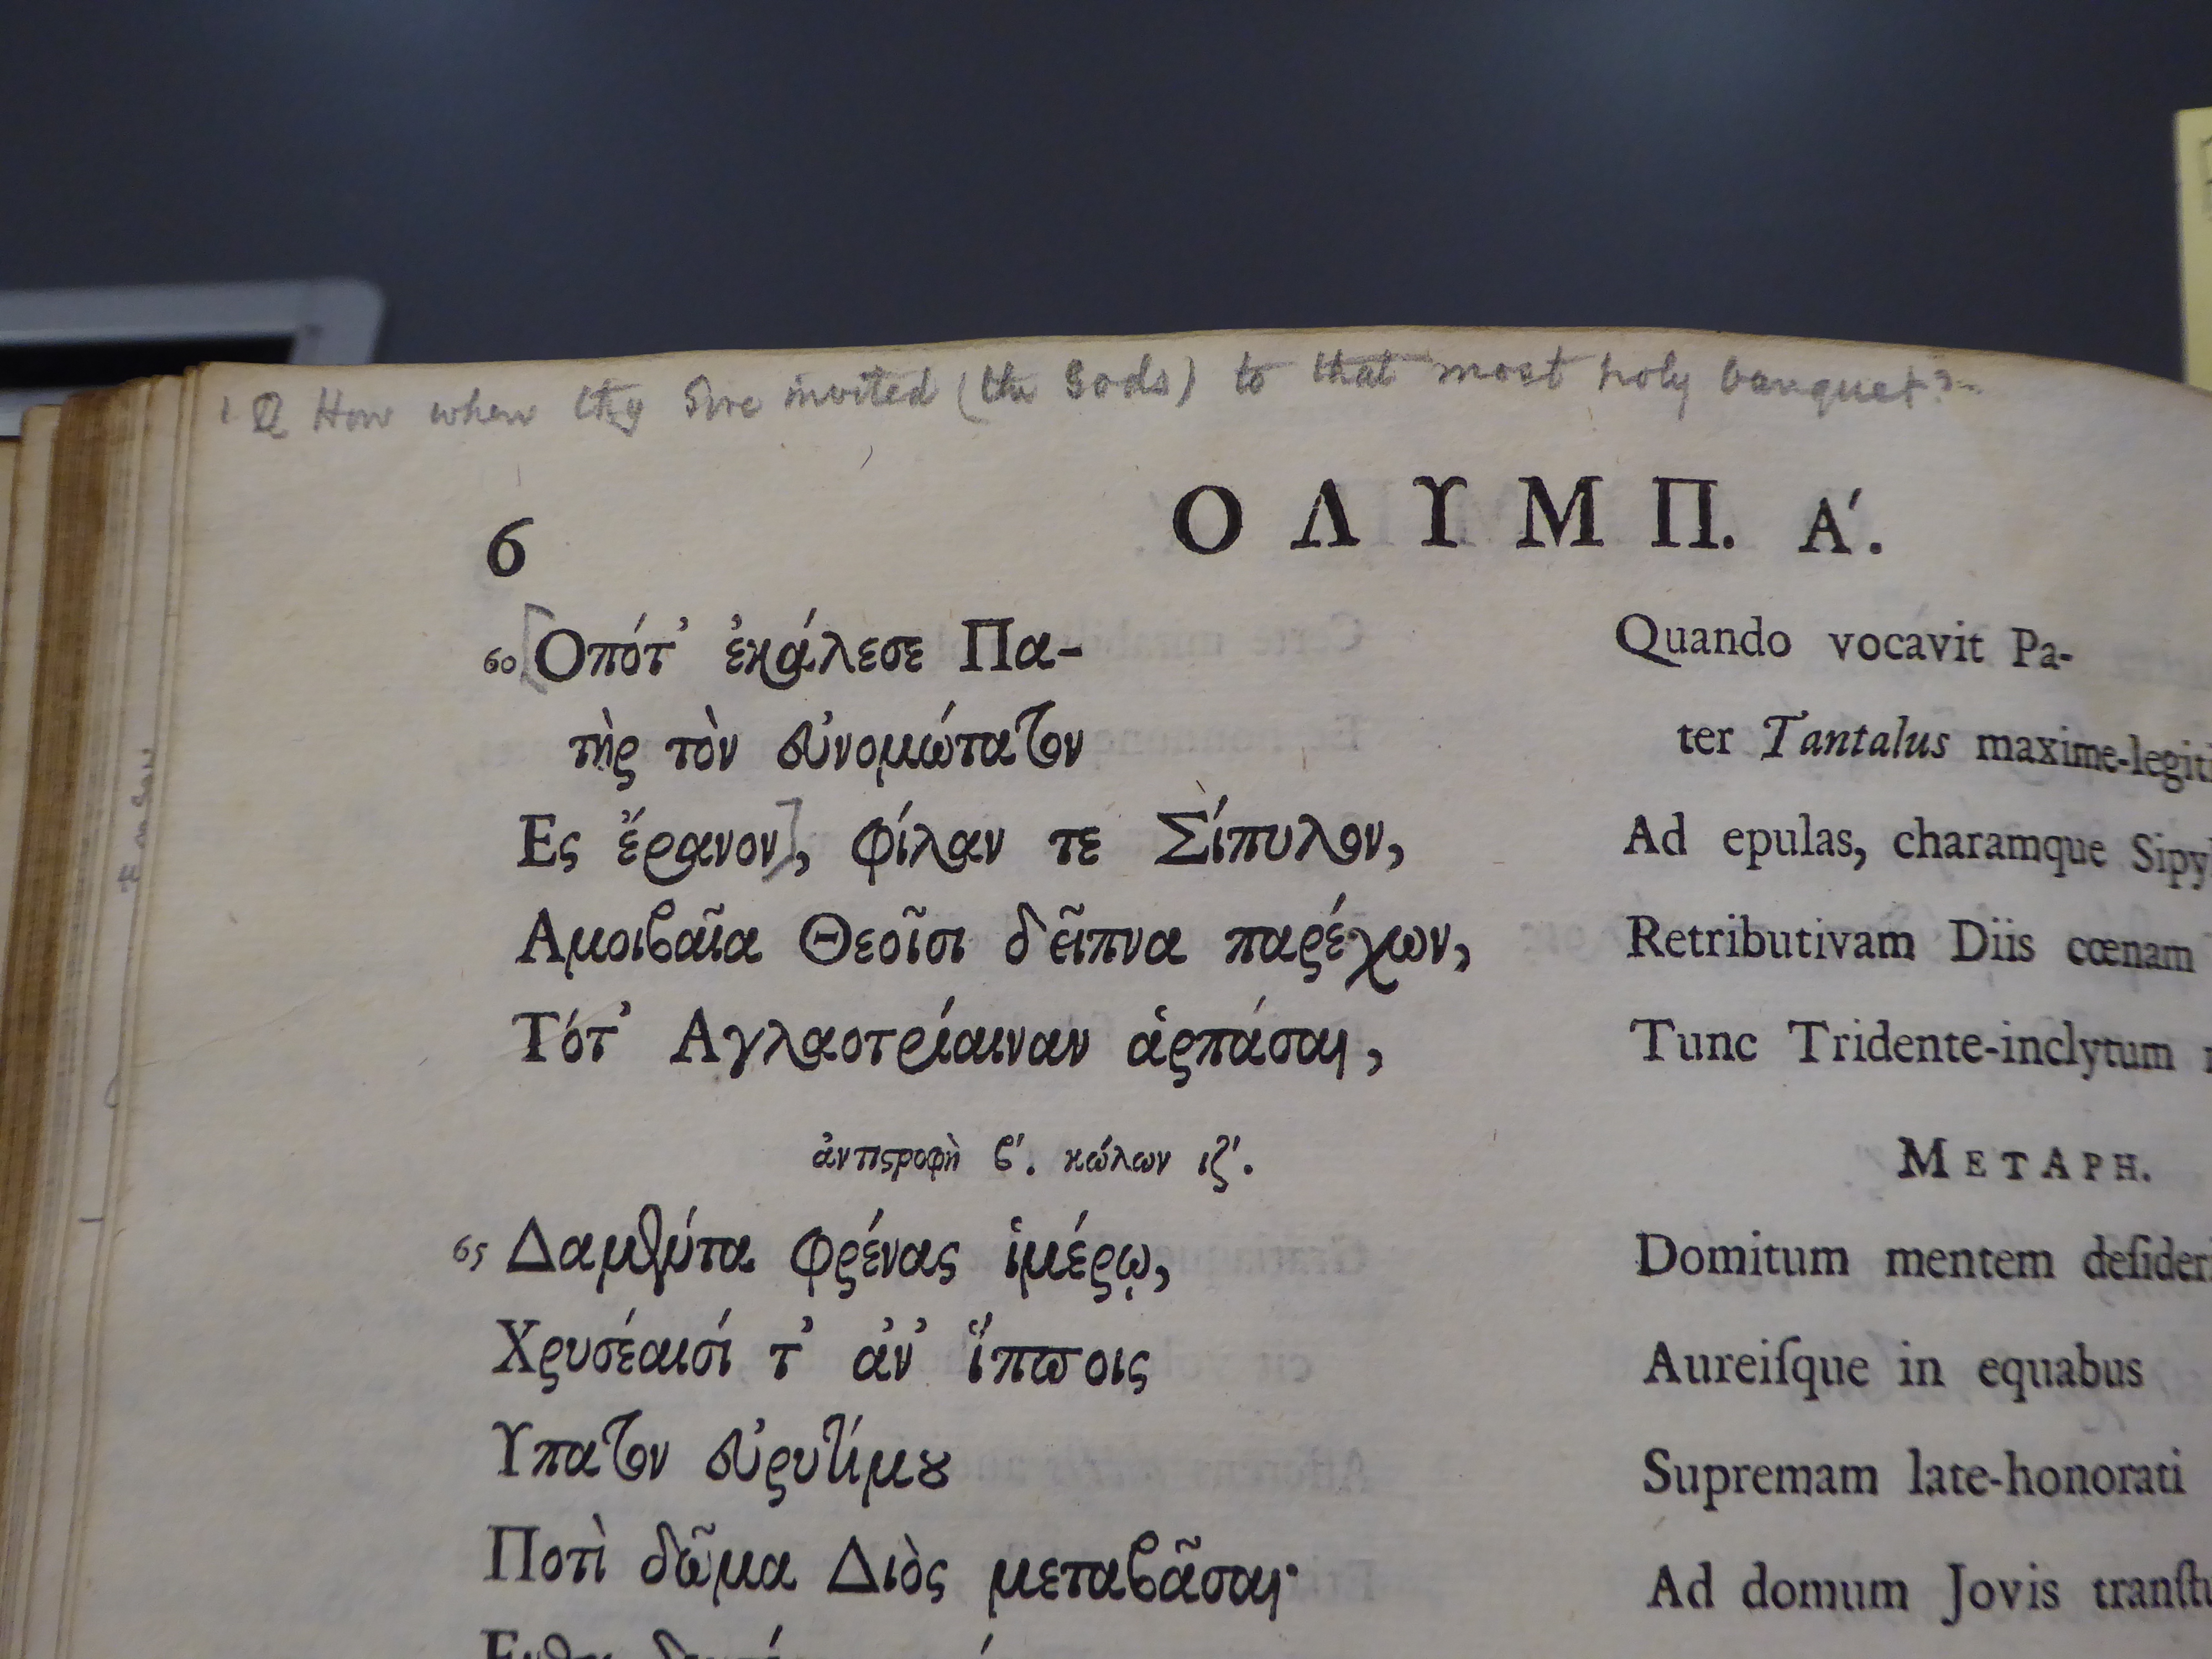 1 Q How when thy Sire invited (the Gods) to that most holy banquet?-
6
ΟΛΥΜΠ. Α΄.
60 [Οπότ' ἐκάλεσε Πα-
τὴρ τὸν εὐνομώτατον
Ες ἔρανον], φίλαν τε Σίπυλον,
Αμοιβαῖα Θεοῖσι δεῖπνα παρέχων,
Τότ' Αγλαοτρίαιναν ἁρπάσαι,
ἀντιστροφὴ β'. κώλων ιζ'.
65 Δαμέντα φρένας ἱμέρῳ,
Χρυσέαισί τ' ἀν' ἵπποις
Υπατον εὐρυτίμου
Ποτὶ δῶμα Διὸς μεταβᾶσαι·
Quando vocavit Pa-
ter Tantalus maxime-legiti
Ad epulas, charamque Sipy
Retributivam Diis cœnam
Tunc Tridente-inclytum
METAPH.
Domitum mentem deſider
Aureiſque in equabus
Supremam late-honorati
Ad domum Jovis tranſtu